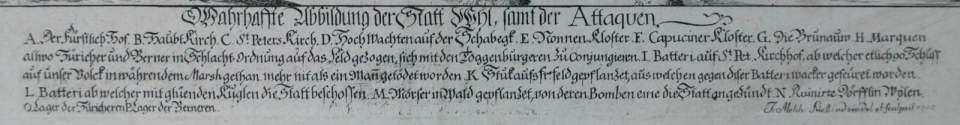 Wahrhaffte Abbildung der Statt Wyl, samt der Attaquen
A. Der Fürstlich Hof. B. Haubt Kirch. C. St Peters Kirch. D. Hoch Wachten auf der Schabegk. E. Nonnen Kloster. F. Capuciner Kloster. G. Die Brünaüw H. Marquen
alwo Züricher und Berner in Schlacht Ordnüng auf das Feld gezogen, sich mit den Toggenbürgeren zü Conjungieren. I. Batteri auf St. Pet. Kirchhof, ab welcher etlich 60 Schüss
auf ünser Volck in währendem Marsch gethan, mehr nit als ein Mañ getödet worden. K. Stük aufs frÿ feld gepflanzet, aus welchen gegen diser Batteri wacker gefeüret worden.
L. Batteri ab welcher mit glüenden Küglen die Statt beschossen. M. Mörser im Wald gepflanzet, von deren Bomben eine die Statt angezündt. N. Ruinirte Dörfflin Wÿlen.
O. Lager der Züricheren. P. Lager der Berneren. J. Melch.